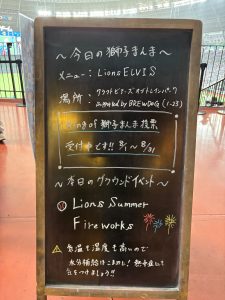 〜今日の獅子まんま〜
メニュー：Lions ELVIS
場所：クラフトビアーズオブトレインパーク
supported by BREWDOG (1-23)
King of 獅子まんま 投票
受付中です!! 8/1〜8/31
〜本日のグラウンドイベント〜
Lions Summer
Fireworks
気温も湿度も高いので
水分補給はこまめに！熱中症にも
気をつけましょう!!